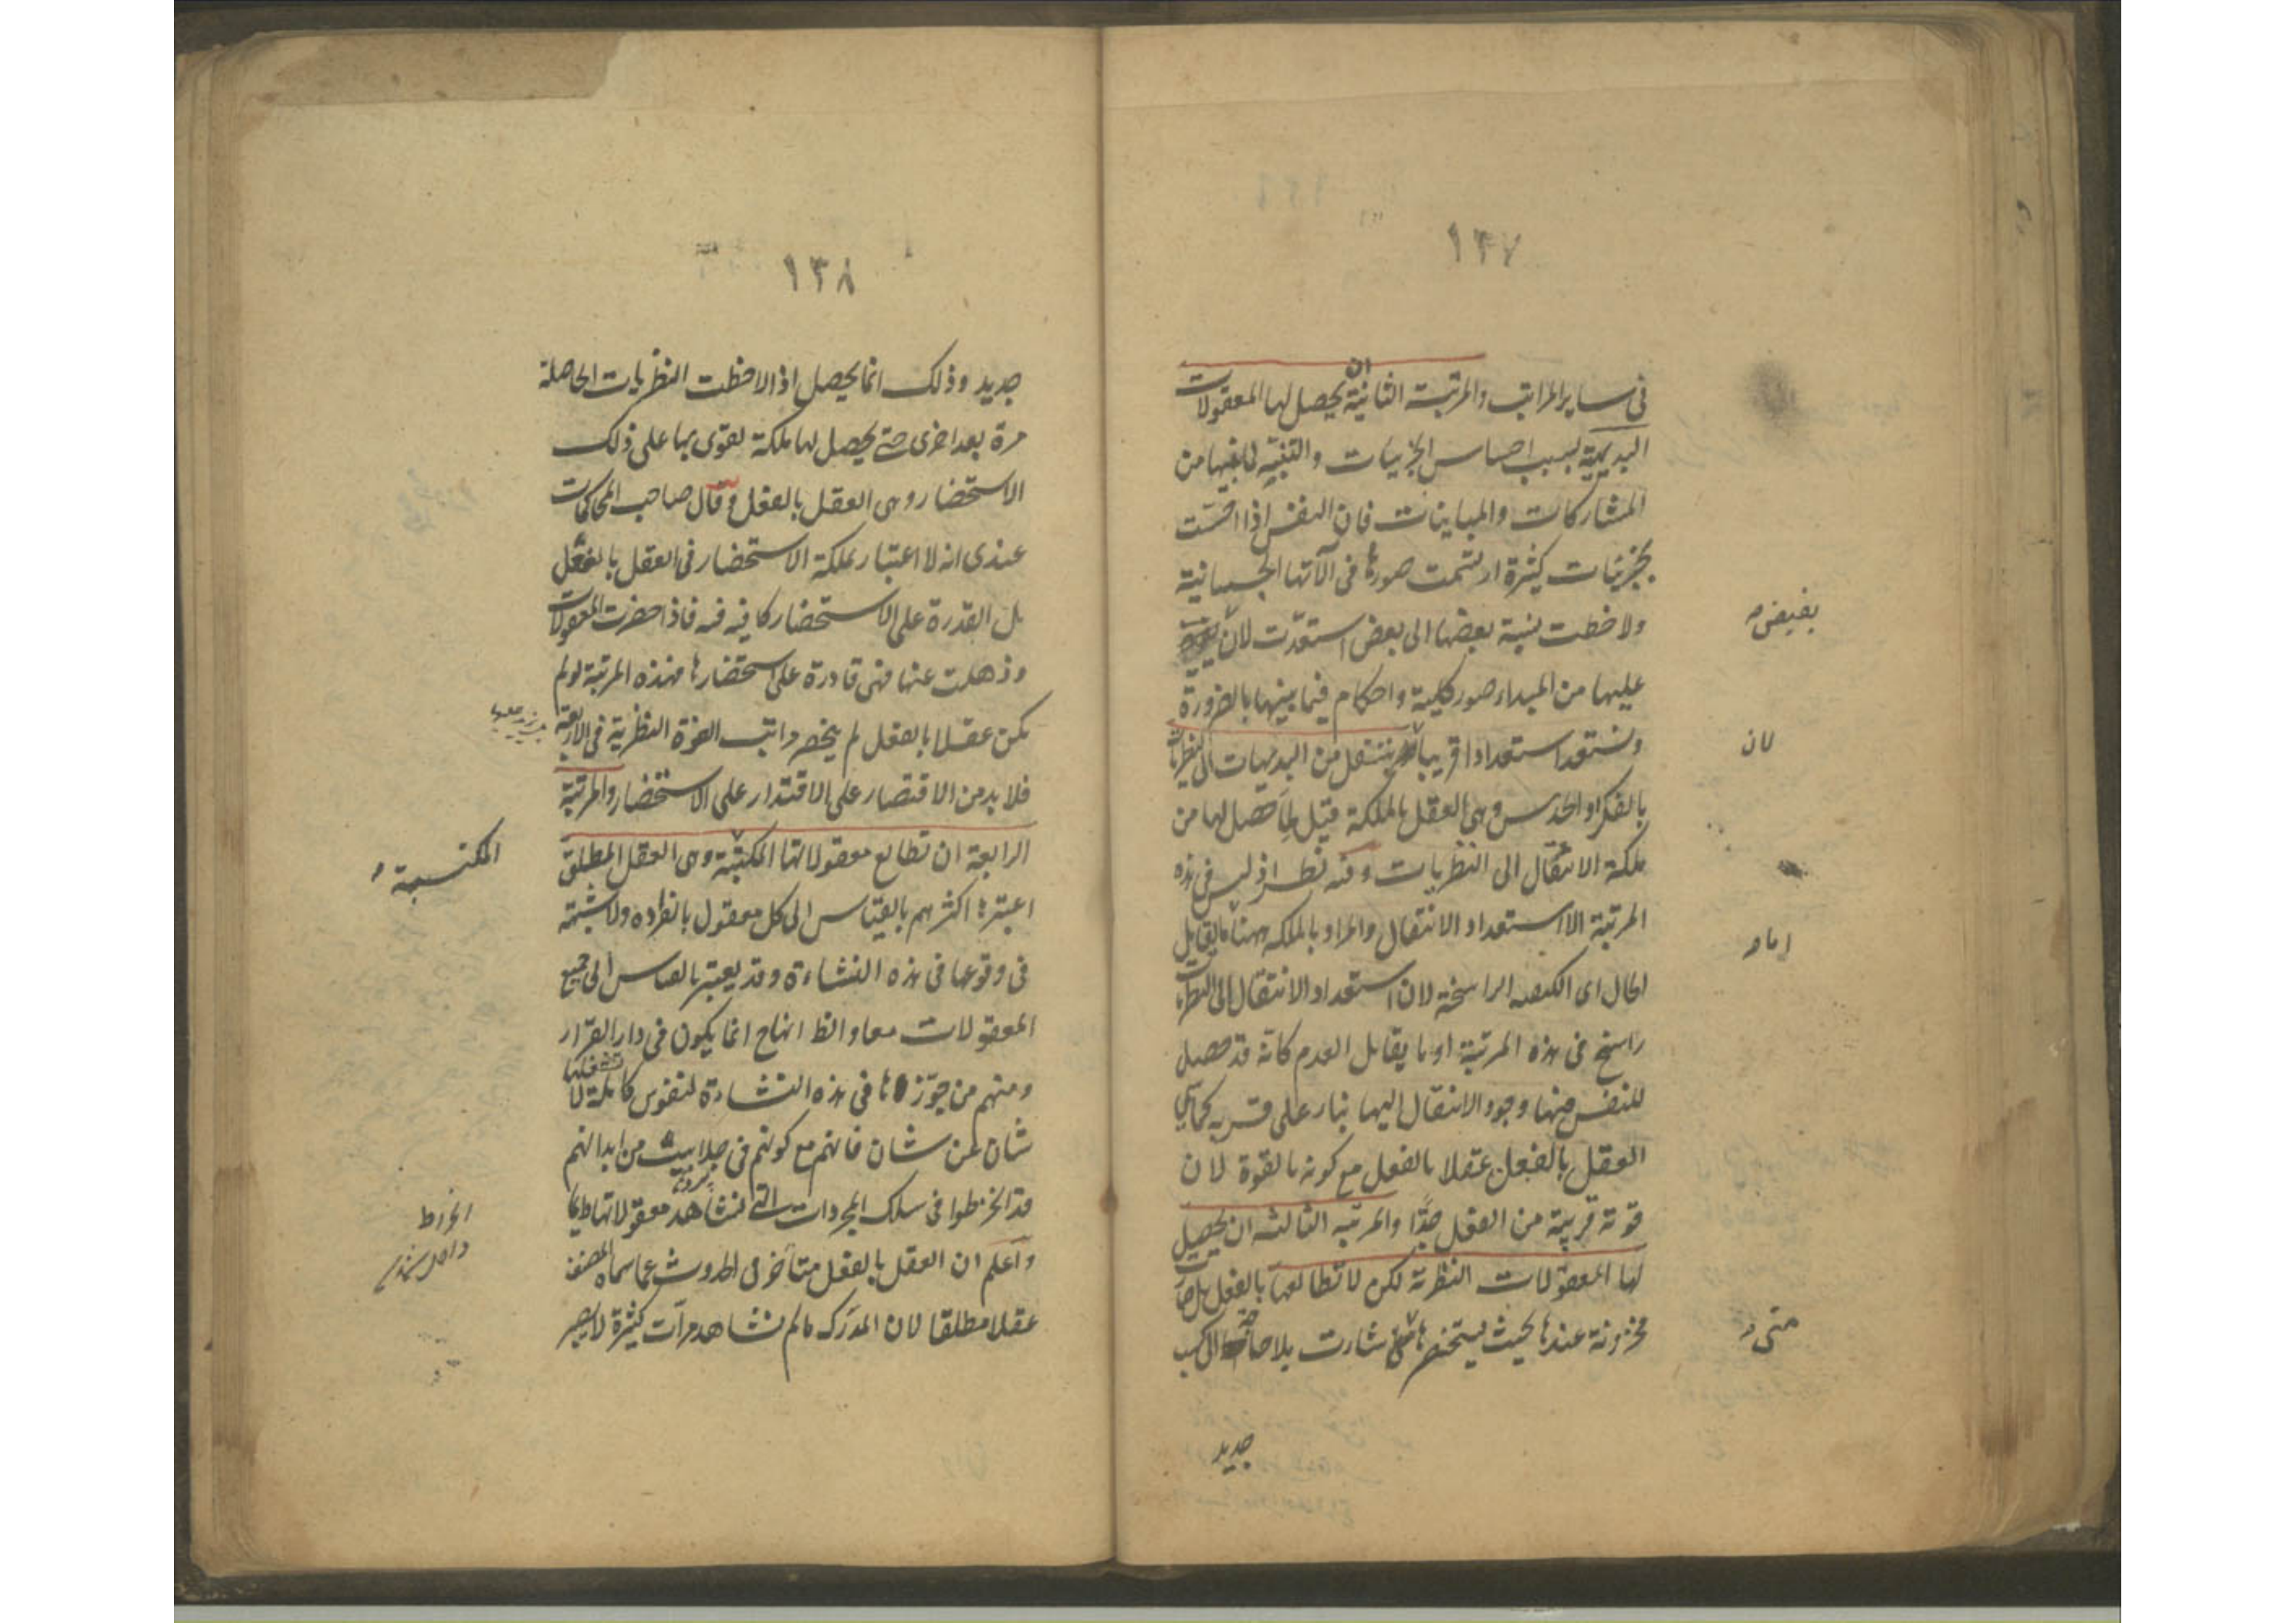 ١٣٧
في ساير المراتب والمرتبة الثانية ان يحصل لها المعقولات
البديهية بسبب احساس الجزئيات والتنبيه لما بينها من
المشاركات والمباينات فان النفس اذا احست
بجزئيات كثيرة ارتسمت صورها في آلاتها الجسمانية
ولاحظت نسبة بعضها الى بعض استعدت لان
بفيض
عليها من المبداء صور كلية واحكام فيما بينها بالضرورة
وتستعد استعدادا قريبا ينتقل من البديهيات الى النظريات
لان
بالفكر او الحدس وهي العقل بالملكة قيل لما حصل لها من
ملكة الانتقال الى النظريات وفيه نظر اذ ليس في هذه
المرتبة الا استعداد الانتقال والمراد بالملكة ههنا ما يقابل
اما
الحال اى الكيفيه الراسخة لان استعداد الانتقال الى النظريات
راسخ في هذه المرتبة او ما يقابل العدم كانه قد حصل
للنفس فيها وجود الانتقال اليها بناء على قربه كما سمي
العقل بالفعل عقلا بالفعل مع كونه بالقوة لان
قوته قريبة من الفعل جدّا والمرتبه الثالثه ان يحصل
لها المعقولات النظرية لكن لا تطالعها بالفعل بل صارت
مخزونة عندها بحيث يستحضرها شاءت بلا حاجة الى كسب
متى
جديد
١٣٨
جديد وذلك انما يحصل اذا لاحظت النظريات الحاصلة
مرة بعد اخرى حتى يحصل لها ملكة تقوى بها على ذلك
الاستحضار وهى العقل بالفعل وقال صاحب المحاكمات
عندى انه لا اعتبار بملكة الاستحضار في العقل بالفعل
بل القدرة على الاستحضار كافيه فيه فاذا حضرت المعقولات
وذهلت عنها فهى قادرة على استحضارها فهذه المرتبة لو لم
يكن عقلا بالفعل لم ينحصر مراتب القوة النظرية في الاربعة
فلا بد من الاقتصار على الاقتدار على الاستحضار والمرتبة
الرابعة ان تطالع معقولاتها المكتسبة وهى العقل المطلق
المكتسبة
اعتبرها اكثرهم بالقياس الى كل معقول بانفراده ولا شبهة
في وقوعها في هذه النشاءة وقد يعتبر بالقياس الى جميع
المعقولات معا والظ انها ح انما يكون في دار القرار
ومنهم من جوّزها في هذه النشاءة لنفوس كاملة لا يشغلها
شان عن شان فانهم مع كونهم في جلابيب من ابدانهم
قد انخرطوا في سلك المجردات التى تشاهد معقولاتها دايما
انخراط
واعلم ان العقل بالفعل متأخر في الحدوث عما سماه المصنف
عقلا مطلقا لان المدرَك ما لم تشاهد مرات كثيرة لا يصير